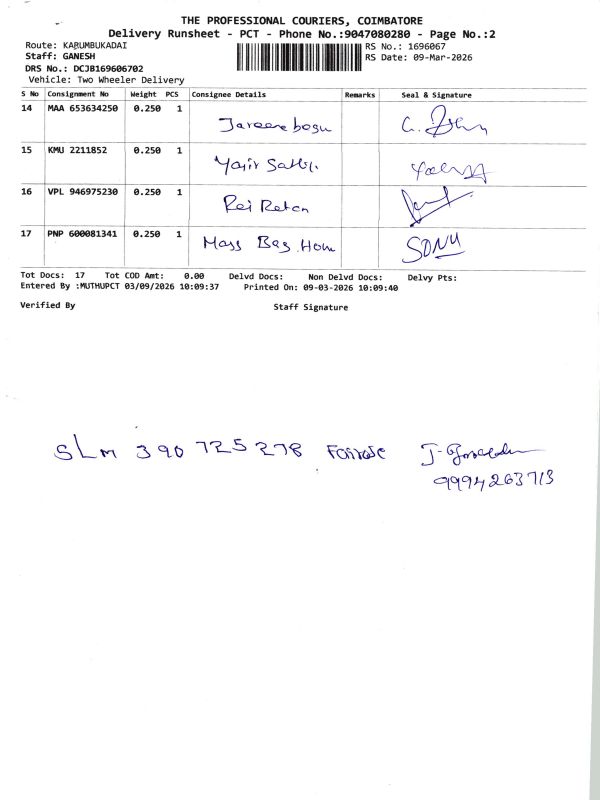 THE PROFESSIONAL COURIERS, COIMBATORE
Delivery Runsheet - PCT - Phone No.:9047080280 - Page No.:2
Route: KARUMBUKADAI
Staff: GANESH
DRS No.: DCJB169606702
Vehicle: Two Wheeler Delivery
RS No.: 1696067
RS Date: 09-Mar-2026
S No Consignment No Weight PCS Consignee Details Remarks Seal & Signature
14 MAA 653634250 0.250 1
15 KMU 2211852 0.250 1 Yasir
16 VPL 946975230 0.250 1 Raj Ratan
17 PNP 600081341 0.250 1 Mass Bag Hom SONU
Tot Docs: 17 Tot COD Amt: 0.00 Delvd Docs: Non Delvd Docs: Delvy Pts:
Entered By :MUTHUPCT 03/09/2026 10:09:37 Printed On: 09-03-2026 10:09:40
Verified By Staff Signature
SLM 390 725 278
9994263713